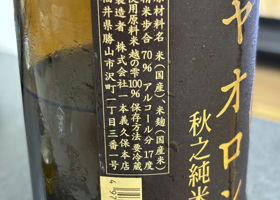 ャオロン
秋之純米
原材料名 米(国産)、米麹(国産米)
精米歩合 70% アルコール分 17度
使用原料米 越の雫100% 保存方法 要冷蔵
製造者 株式会社一本義久保本店
福井県勝山市沢町一丁目三番一号